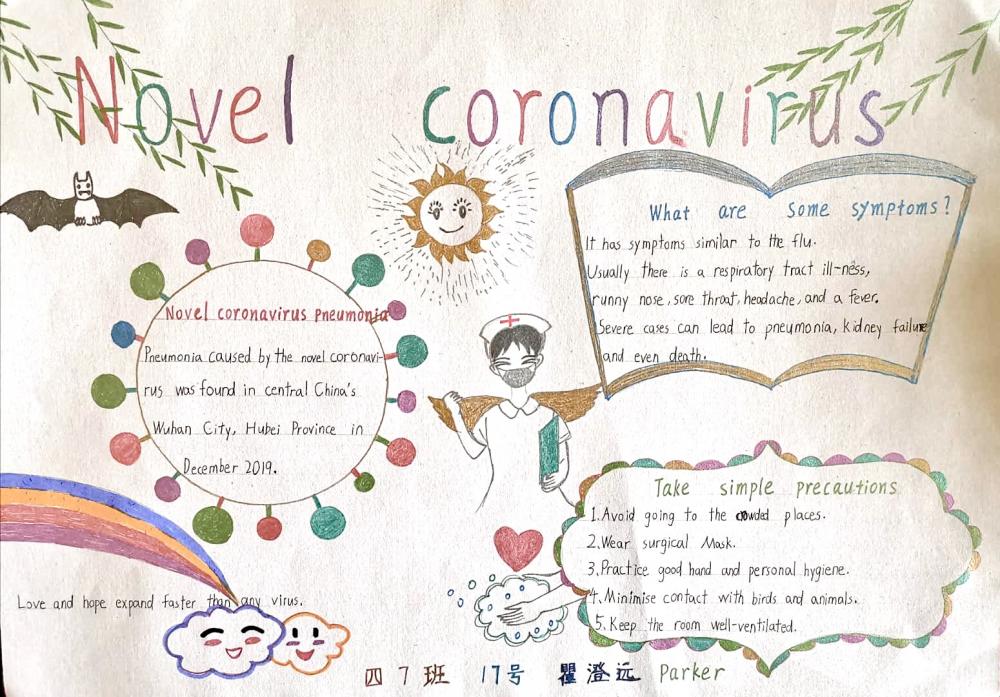 Novel coronavirus
Novel coronavirus pneumonia
Pneumonia caused by the novel coronavi-
rus was found in central China's
Wuhan City, Hubei Province in
December 2019.
What are some symptoms?
It has symptoms similar to the flu.
Usually there is a respiratory tract ill-ness,
runny nose, sore throat, headache, and a fever.
Severe cases can lead to pneumonia, kidney failure
and even death.
Take simple precautions
1.Avoid going to the crowded places.
2.Wear surgical Mask.
3.Practice good hand and personal hygiene.
4.Minimise contact with birds and animals.
5.Keep the room well-ventilated.
Love and hope expand faster than any virus.
四7班 17号 瞿澄远 Parker